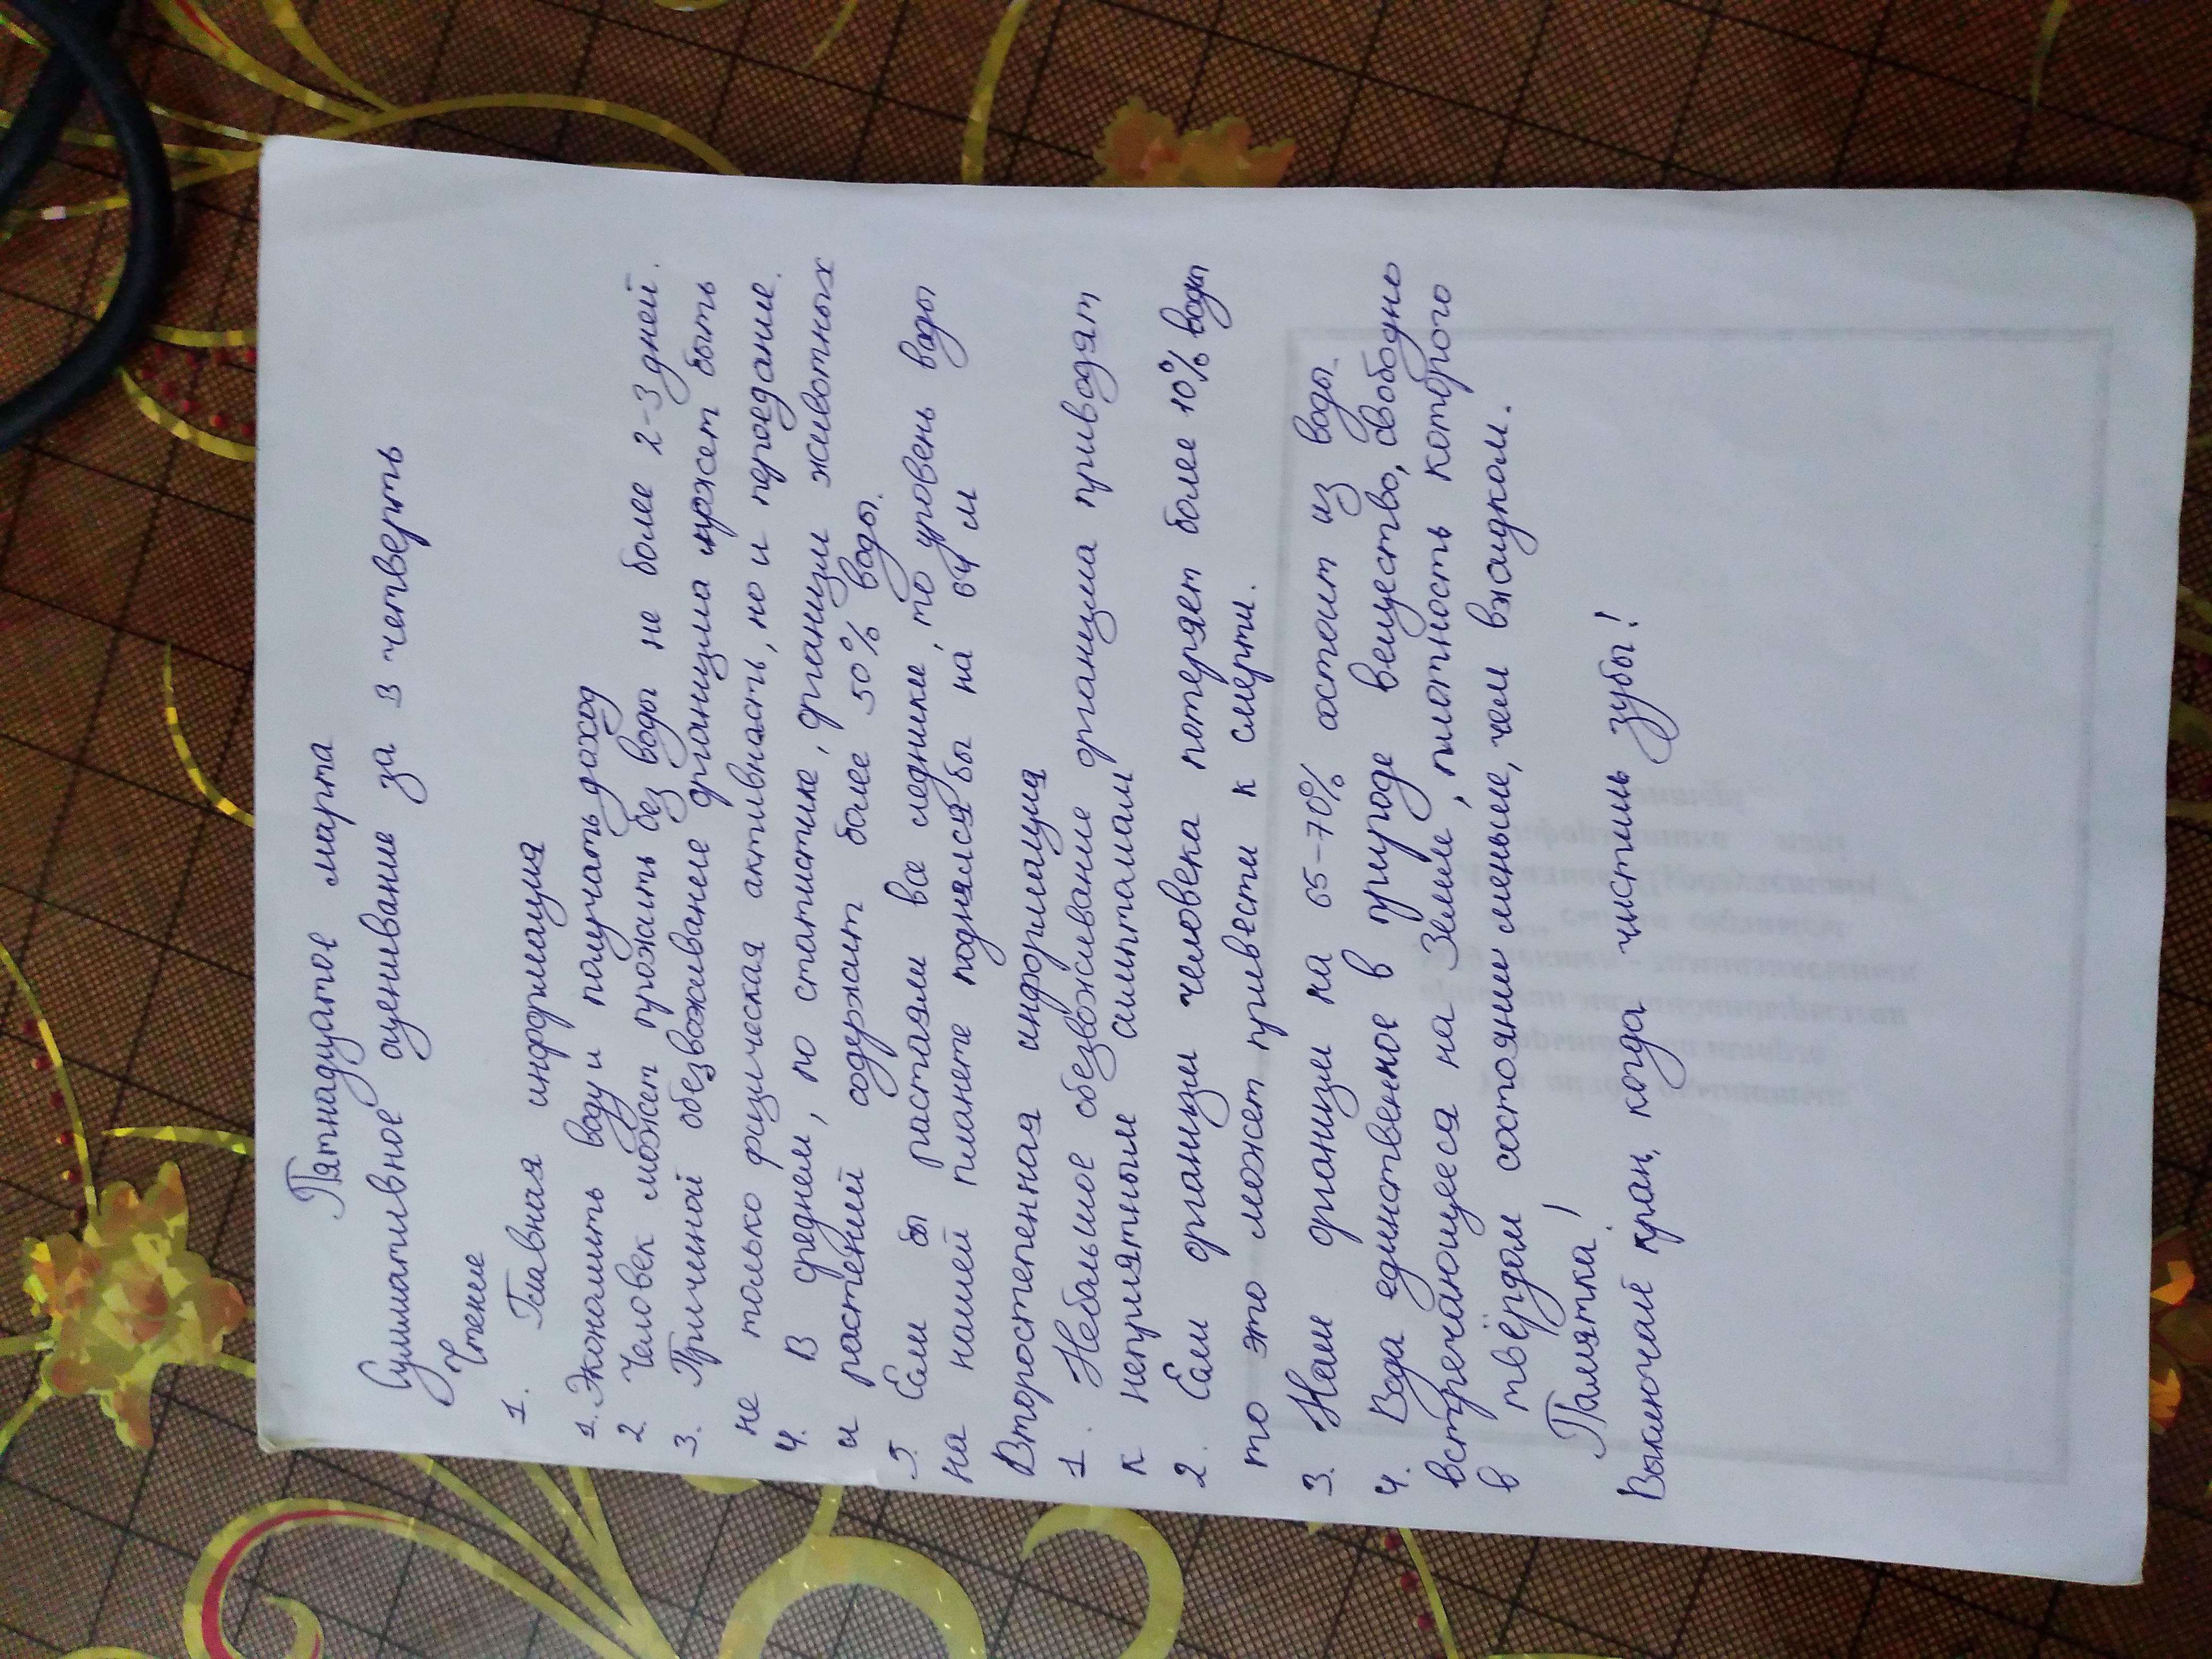 Пятнадцатое марта
Суммативное оценивание за 3 четверть
Чтение
1. Главная информация
1. Экономить воду и получать доход
2. Человек может прожить без воды не более 2-3 дней.
3. Причиной обезвоживанее организма может быть
не только физическая активность, но и переедание.
4. В среднем, по статистике, организм животных
и растений содержит более 50% воды.
5. Если бы растаяли все ледники, то уровень воды
на нашей планете поднялся бы на 64 м
Второстепенная информация
1. Небольшое обезвоживание организма приводят
к неприятным симптомам
2. Если организм человека потеряет более 10% воды
то это может привести к смерти.
3. Наш организм на 65-70% состоит из воды.
4. Вода единственное в природе вещество, свободно
встречающееся на Земле, плотность которого
в твёрдом состоянии меньше, чем в жидком.
Памятка!
Выключай кран, когда чистишь зубы!